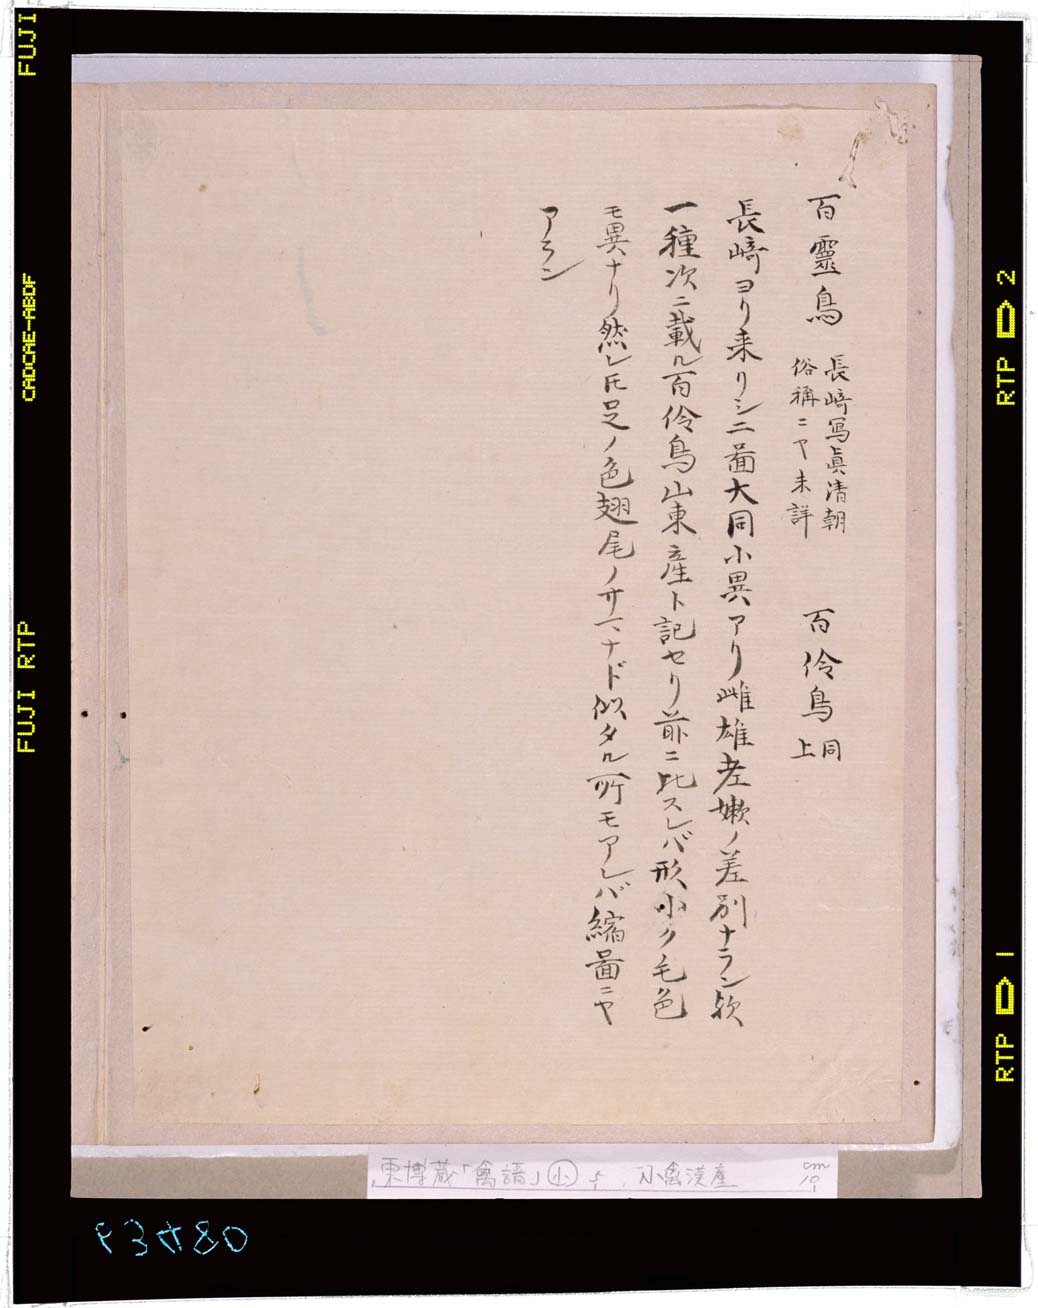 百靈鳥 長﨑寫眞清朝
俗稱ニヤ未詳 百伶鳥 同
上
長﨑ヨリ来リシ二圖大同小異アリ雌雄老嫩ノ差別ナラン歟
一種次ニ載ル百伶鳥山東産ト記セリ前ニ比スレバ形小ク毛色
モ異ナリ然レ𪜈足ノ色翅尾ノサマナド似タル所モアレバ縮圖ニヤ
アラン
東博蔵「禽譜」小 小禽漢産
cm
10
FUJI
CADCAE-ABDF
FUJI RTP
RTP 2
RTP 1